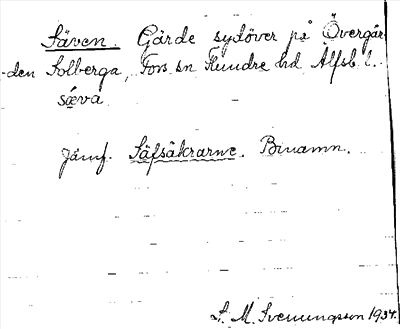 Säven. Gärde sydöver på Övergår
den Solberga, Fors sn Flundre hd Älfsb l.
sǿva
Jämf. Säfsäkrarne. Binamn.
S. M. Svenungsson 1934.